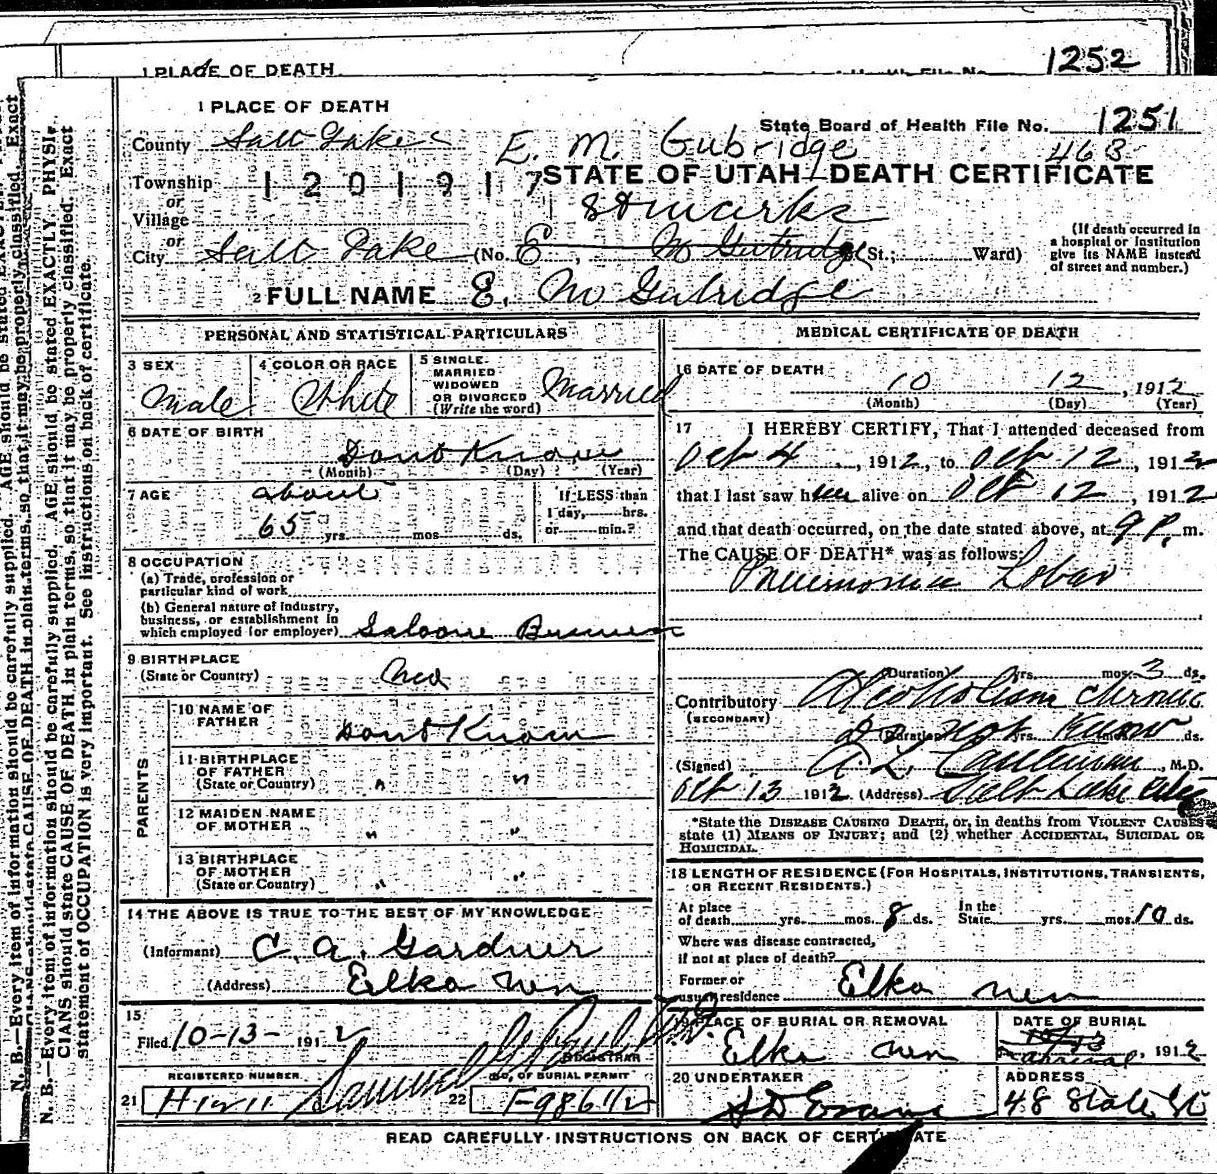 1252
1 PLACE OF DEATH
1 PLACE OF DEATH
State Board of Health File No. 1251
County Salt Lake
E. M. Gutridge
468
Township 1201917
STATE OF UTAH—DEATH CERTIFICATE
or
Village
St marks
or
City Salt Lake (No. E, M Gutridge St.; Ward)
(If death occurred in a hospital or institution give its NAME instead of street and number.)
2 FULL NAME E. M Gutridge
PERSONAL AND STATISTICAL PARTICULARS
3 SEX
Male
4 COLOR OR RACE
White
5 SINGLE
MARRIED
WIDOWED
OR DIVORCED
(Write the word)
Married
6 DATE OF BIRTH
Dont Know
(Month) (Day) (Year)
7 AGE
about
65 yrs. mos. ds.
If LESS than
1 day, hrs.
or min.?
8 OCCUPATION
(a) Trade, profession or
particular kind of work
(b) General nature of industry,
business, or establishment in
which employed (or employer) Saloone Business
9 BIRTHPLACE
(State or Country)
PARENTS
10 NAME OF
FATHER
Dont Know
11 BIRTHPLACE
OF FATHER
(State or Country) " "
12 MAIDEN NAME
OF MOTHER " "
13 BIRTHPLACE
OF MOTHER
(State or Country) " "
14 THE ABOVE IS TRUE TO THE BEST OF MY KNOWLEDGE
(Informant) C. A. Gardner
(Address) Elko Nev
15
Filed 10-13- 1912
REGISTRAR
REGISTERED NUMBER
21
NO. OF BURIAL PERMIT
22
MEDICAL CERTIFICATE OF DEATH
16 DATE OF DEATH
10 12, 1912
(Month) (Day) (Year)
17 I HEREBY CERTIFY, That I attended deceased from
Oct 4, 1912, to Oct 12, 1912
that I last saw him alive on Oct 12, 1912
and that death occurred, on the date stated above, at 9 P. m.
The CAUSE OF DEATH* was as follows:
Pneumonia Lobar
(Duration) yrs. mos. 3 ds.
Contributory Alcoholism chronic
(SECONDARY)
Do not Know
(Duration) yrs. mos. ds.
(Signed) A. L. M.D.
Oct 13 1912 (Address) Salt Lake City
*State the DISEASE CAUSING DEATH, or, in deaths from VIOLENT CAUSES
state (1) MEANS OF INJURY; and (2) whether ACCIDENTAL, SUICIDAL OR
HOMICIDAL.
18 LENGTH OF RESIDENCE (FOR HOSPITALS, INSTITUTIONS, TRANSIENTS,
OR RECENT RESIDENTS.)
At place
of death yrs. mos. 8 ds.
In the
State yrs. mos. 10 ds.
Where was disease contracted,
if not at place of death?
Former or
usual residence Elko Nev
19 PLACE OF BURIAL OR REMOVAL
Elko Nev
DATE OF BURIAL
, 1912
20 UNDERTAKER
S D Evans
ADDRESS
48 State St
READ CAREFULLY INSTRUCTIONS ON BACK OF CERTIFICATE
N. B.—Every item of information should be carefully supplied. AGE should be stated EXACTLY. PHYSI-
CIANS should state CAUSE OF DEATH in plain terms, so that it may be properly classified. Exact
statement of OCCUPATION is very important. See instructions on back of certificate.
N. B.—Every item of information should be carefully supplied. AGE should be stated EXACTLY
CIANS should state CAUSE OF DEATH in plain terms, so that it may be properly classified. Exact